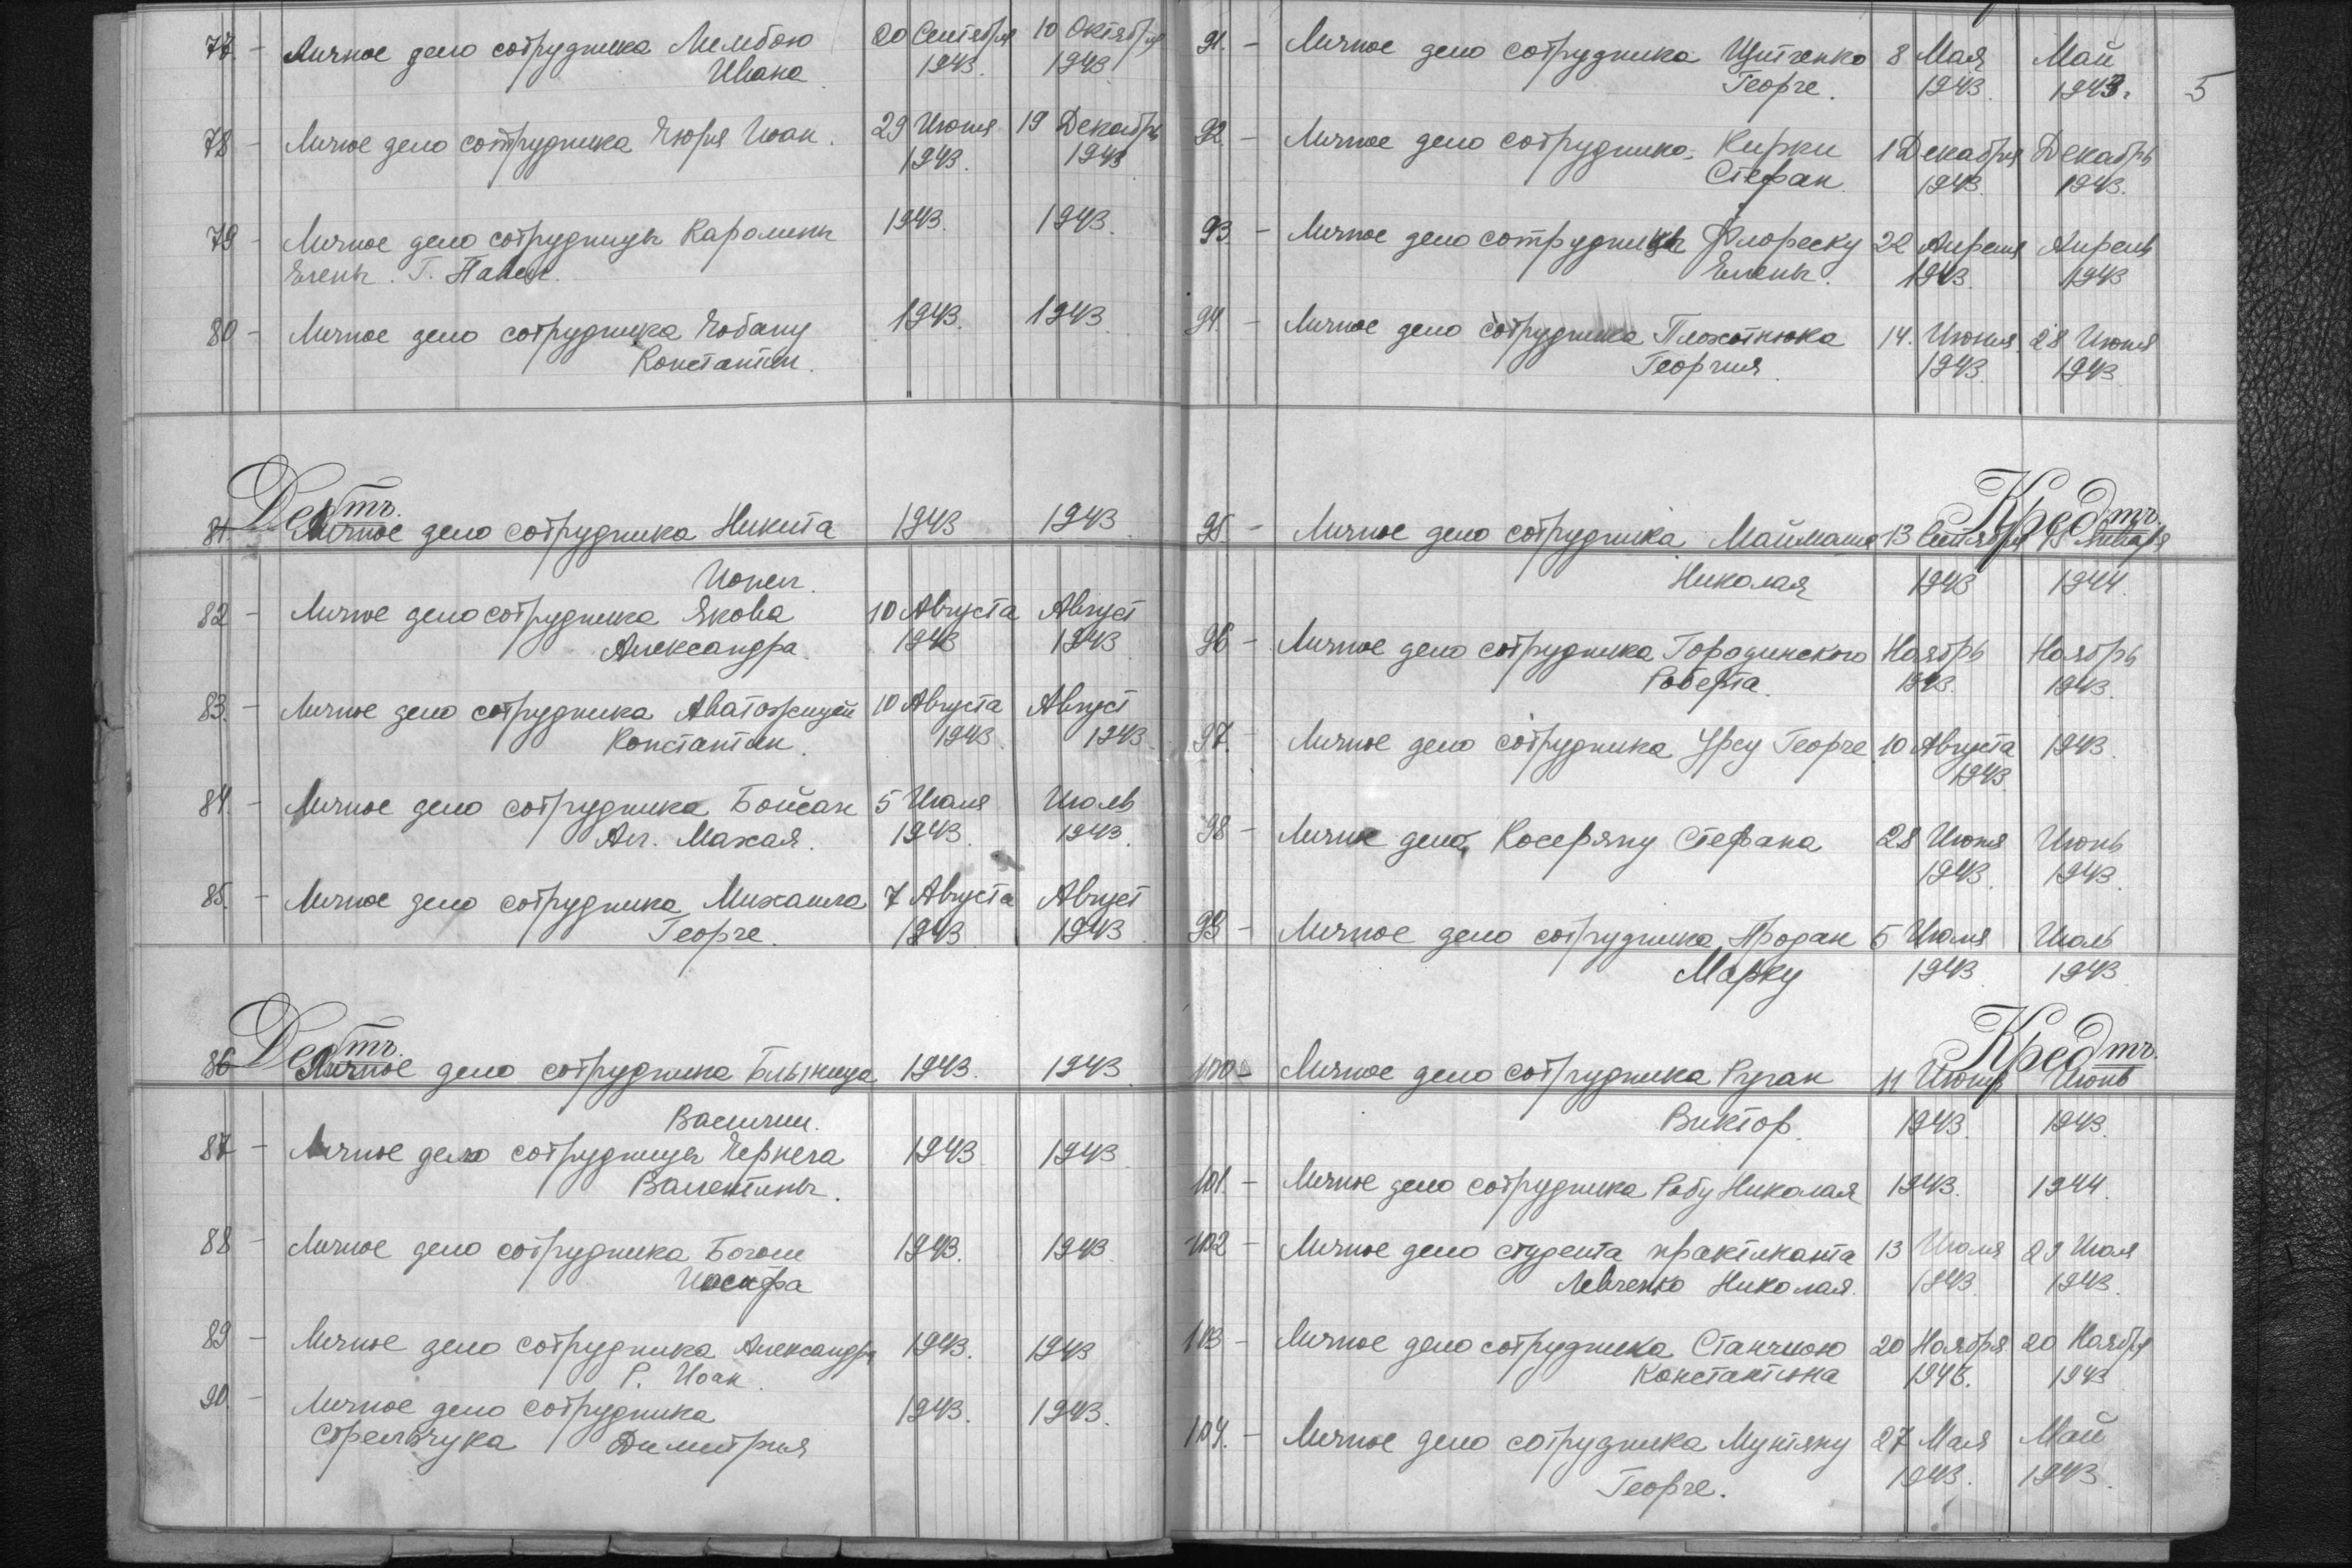 77. - Личное дело сотрудника Лимбою 20 Сентября 10 Октября
Ивана. 1943. 1943
78 - Личное дело сотрудника Чюря Иоан. 29 Июня 19 Декабрь
1943. 1943
79 - Личное дело сотрудницы Каролины 1943. 1943.
Елены. Г. Павел.
80 - Личное дело сотрудника Чобану 1943. 1943.
Константин.
Дебтъ.
81. Личное дело сотрудника Никита 1943 1943
Ионел.
82 - Личное дело сотрудника Якова 10 Августа Август
Александра. 1943 1943
83. - Личное дело сотрудника Константин. 10 Августа Август
1943. 1943.
84. - Личное дело сотрудника Бойсан 5 Июля Июль
Ал. Махая. 1943. 1943.
85. - Личное дело сотрудника Михаила 7 Августа Август
Георге. 1943 1943
Дебтъ.
86 Личное дело сотрудника Блыница 1943. 1943
Василии.
87 - Личное дело сотрудницы Чернега 1943 1943
Валентины.
88 - Личное дело сотрудника Богош 1943. 1943
Иосифа
89 - Личное дело сотрудника Александра 1943. 1943
Р. Иоан.
90. - Личное дело сотрудника 1943. 1943.
Стрельчука Димитрия
91. - Личное дело сотрудника Щитченко 8 Мая Май
Георге. 1943. 1943. 5
92. - Личное дело сотрудника Кирки 1 Декабря Декабрь
Стефан. 1943. 1943.
93. - Личное дело сотрудницы Флореску 22 Апреля Апрель
Елены. 1943. 1943
94. - Личное дело сотрудника Плохотнюка 14. Июня 28 Июня
Георгия. 1943. 1943
Кредтъ.
95. - Личное дело сотрудника Маймаша 13 Сентября 15 Января
Николая 1943 1944.
96 - Личное дело сотрудника Городинского Ноябрь Ноябрь
Роберта. 1943. 1943.
97. Личное дело сотрудника Урсу Георге 10 Августа 1943.
1943
98 - Личное дело Косеряну Стефана 28 Июня Июнь
1943. 1943.
99 - Личное дело сотрудника Продан 5 Июля Июль
Марку 1943 1943
Кредтъ.
100 - Личное дело сотрудника Руган 11 Июнь Июнь
Виктор. 1943. 1943.
101. - Личное дело сотрудника Робу Николая 1943. 1944.
102 - Личное дело студента практиканта 13 Июля 29 Июля
Левченко Николая. 1943. 1943.
103 - Личное дело сотрудника Станчиою 20 Ноября 20 Ноября
Константина 1943. 1943
104. - Личное дело сотрудника Мунтяну 27 Мая Май
Георге. 1943. 1943.